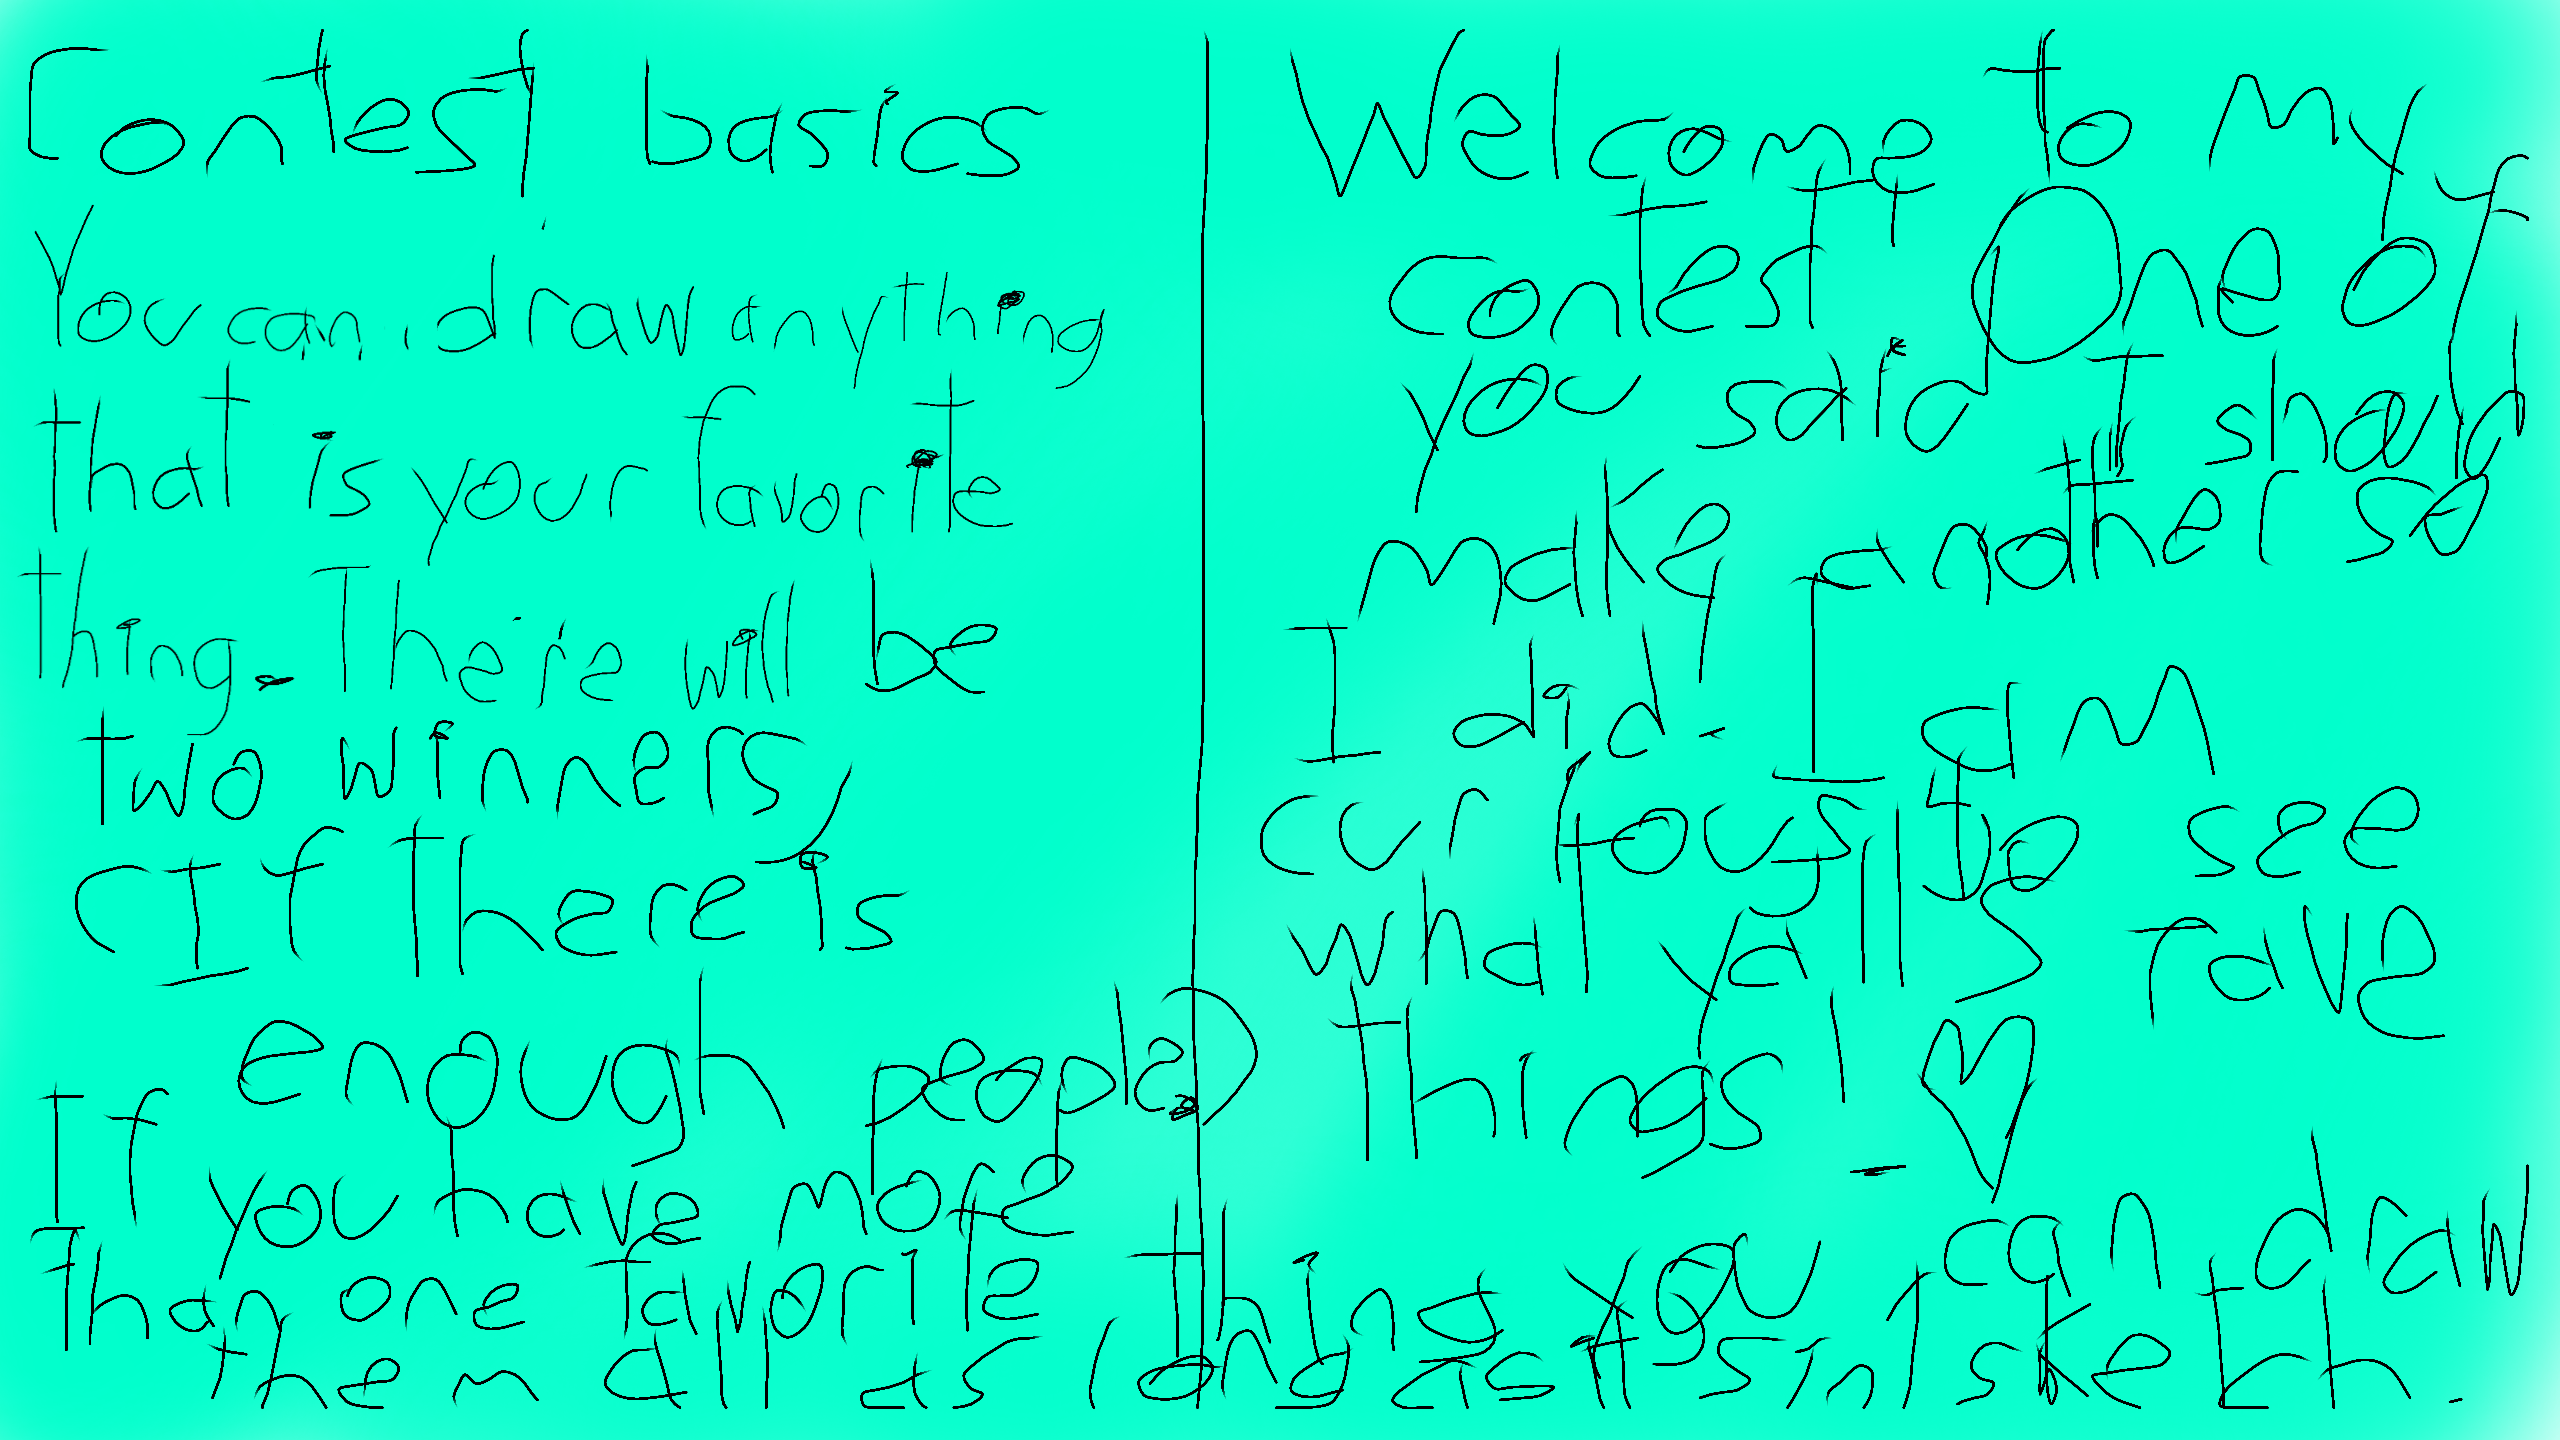 Contest basics
You can draw anything
that is your favorite
thing. There will be
two winners,
(If there is
enough people.)
Welcome to my
contest! One of
you said I should
make another so
I did. I am
curious to see
what yall's fave
things! - ♡
If you have more
Than one favorite thing you can draw
them all as long as it's in 1 sketch.